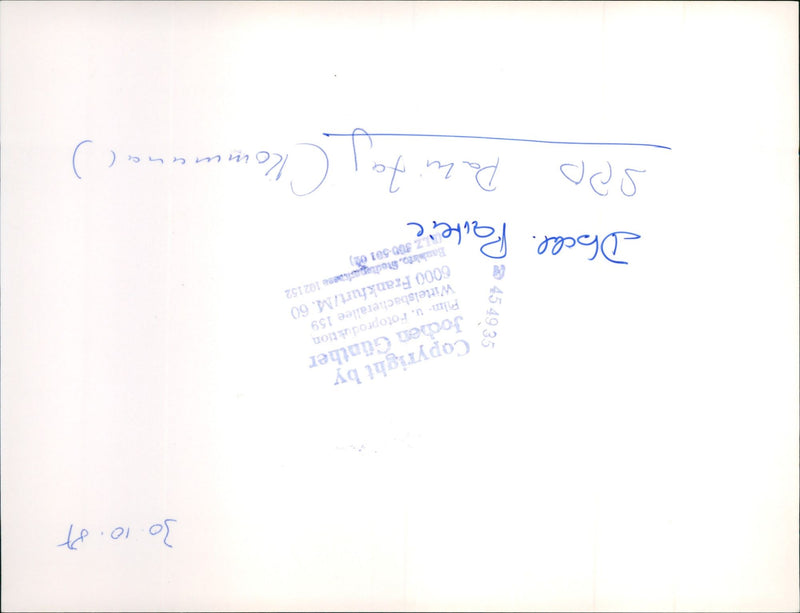 30.10.87
Copyright by
Jochen Günther
Film- u. Fotoproduktion
Wittelsbacherallee 159
6000 Frankfurt/M. 60
Bankkto. Stadtsparkasse 102152
(BLZ 500 501 02)
☎ 45 49 35
SPD Parteitag (Kommunal)